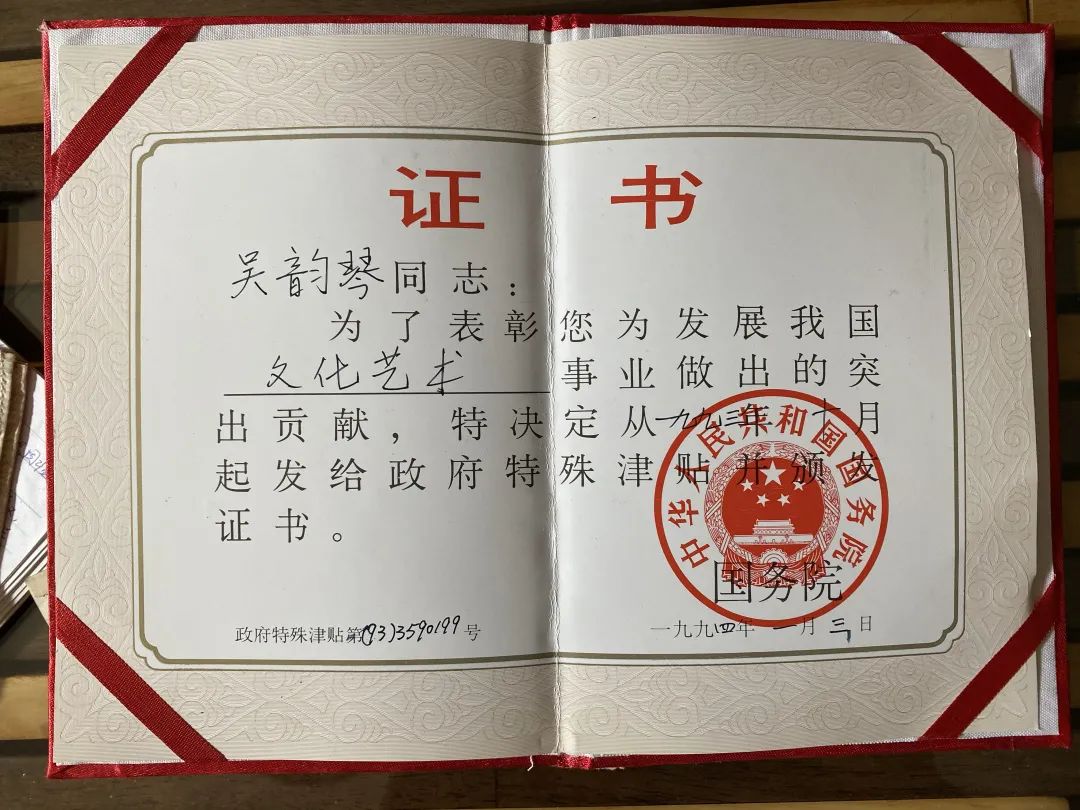 证书
吴韵琴同志：
为了表彰您为发展我国
文化艺术事业做出的突
出贡献，特决定从一九九三年十月
起发给政府特殊津贴并颁发
证书。
中华人民共和国国务院
国务院
政府特殊津贴第(93)3590199号
一九九四年一月三日